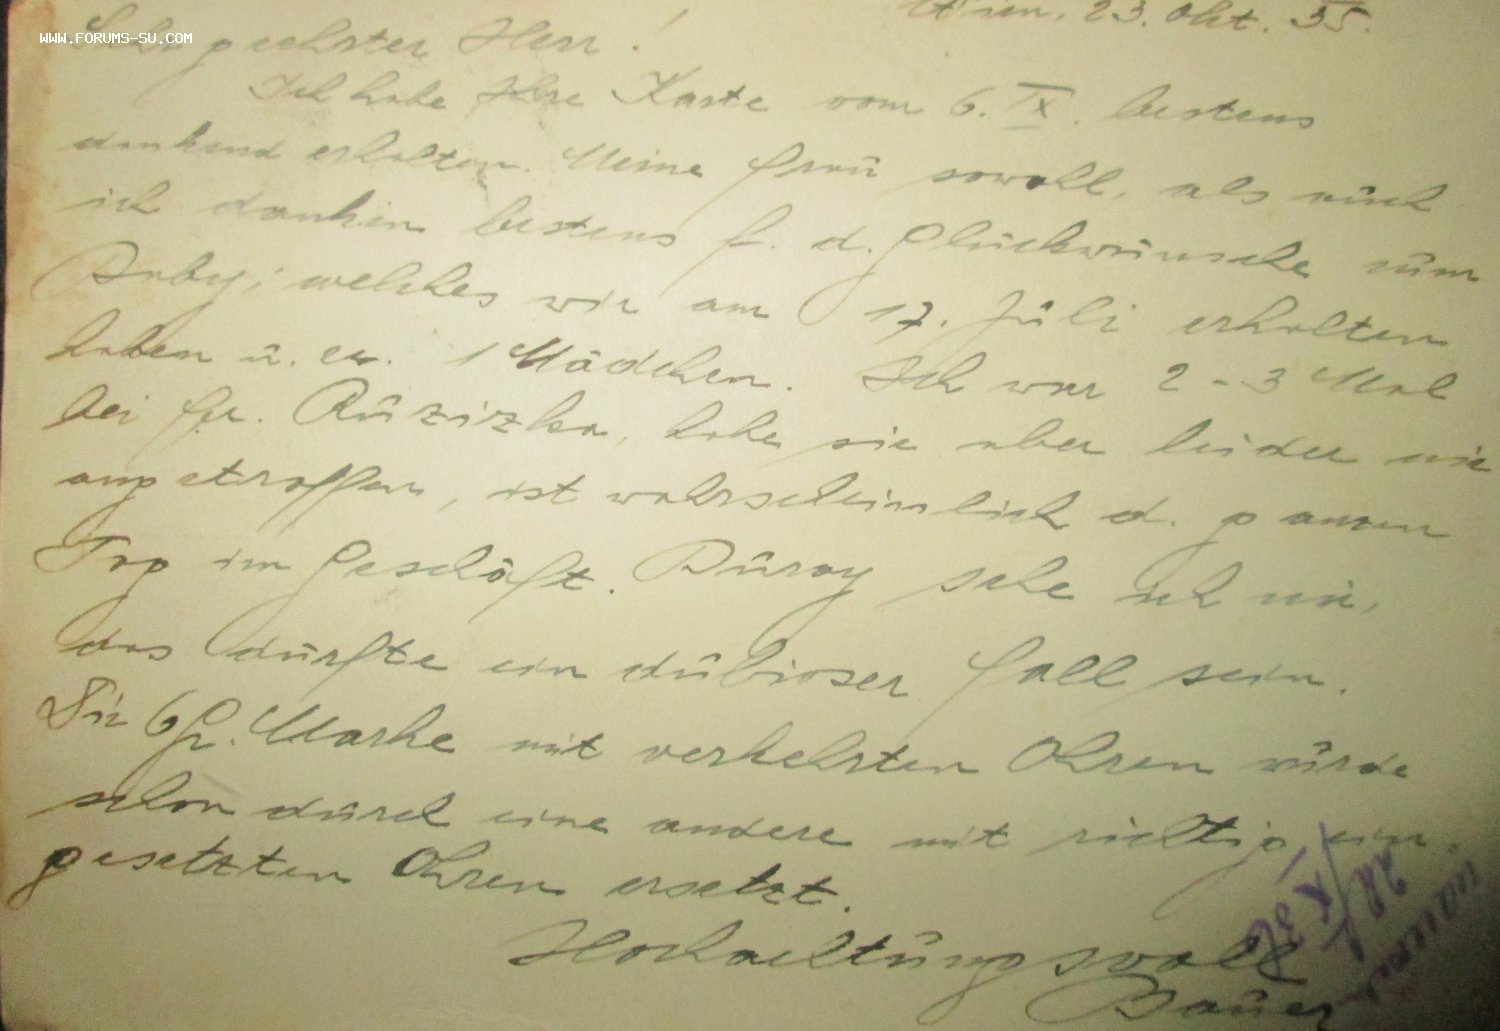 WWW.FORUMS-SU.COM
Wien, 23. Okt. 35.
Sehr geehrter Herr!
Ich habe Ihre Karte vom 6. IX. bestens
dankend erhalten. Meine Frau sowohl, als auch
ich danken bestens f. d. Glückwünsche zum
Baby, welches wir am 17. Juli erhalten
haben u. zw. 1 Mädchen. Ich war 2-3 Mal
bei Fr. Ruzizka, habe sie aber leider nie
angetroffen, ist wahrscheinlich d. ganzen
Tag im Geschäft. Buray sehe ich nie,
das dürfte ein dubioser Fall sein.
Die 6 gr. Marke mit verkehrten Ohren wurde
schon durch eine andere mit richtig ein-
gesetzten Ohren ersetzt.
Hochachtungsvoll
Bauer